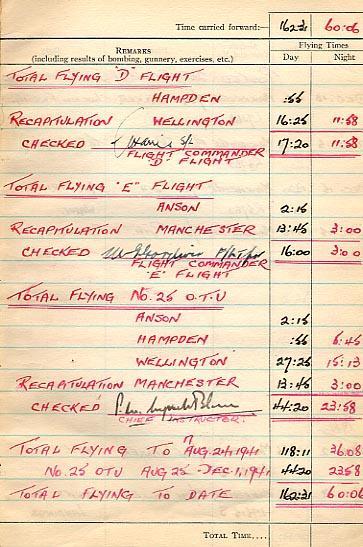 Time carried forward:— 162:31 60:06
REMARKS
(including results of bombing, gunnery, exercises, etc.)
Flying Times
Day Night
TOTAL FLYING "D" FLIGHT
HAMPDEN :55
RECAPITULATION WELLINGTON 16:25 11:58
CHECKED S/L 17:20 11:58
FLIGHT COMMANDER
"D" FLIGHT
TOTAL FLYING "E" FLIGHT
ANSON 2:15
RECAPITULATION MANCHESTER 13:45 3:00
CHECKED 16:00 3:00
FLIGHT COMMANDER
"E" FLIGHT
TOTAL FLYING NO. 25 O.T.U
ANSON 2:15
HAMPDEN :55 6:45
WELLINGTON 27:25 15:13
RECAPITULATION MANCHESTER 13:45 3:00
CHECKED 44:20 23:58
CHIEF INSTRUCTOR.
TOTAL FLYING TO AUG. 24, 1941 118:11 36:08
NO. 25 OTU AUG 25 - DEC. 1, 1941 44:20 23:58
TOTAL FLYING TO DATE 162:31 60:06
TOTAL TIME....